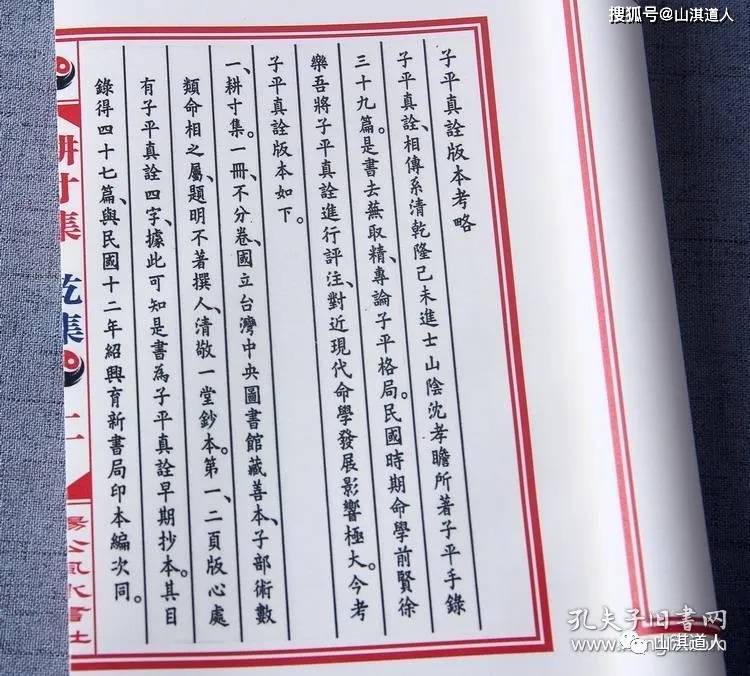 搜狐号@山淇道人
子平真詮版本考略
子平真詮、相傳系清乾隆己未進士山陰沈孝瞻所著子平手錄
三十九篇。是書去蕪取精、專論子平格局。民國時期命學前賢徐
樂吾將子平真詮進行評注、對近現代命學發展影響極大。今考
子平真詮版本如下。
一、耕寸集。一冊、不分卷、國立台灣中央圖書館藏善本、子部術數
類命相之屬、題明不著撰人、清敬一堂鈔本。第一、二頁版心處
有子平真詮四字、據此可知是書為子平真詮早期抄本。其目
錄得四十七篇、與民國十二年紹興育新書局印本編次同。
耕寸集 乾集
二
楊公風水書社
孔夫子旧书网
山淇道人